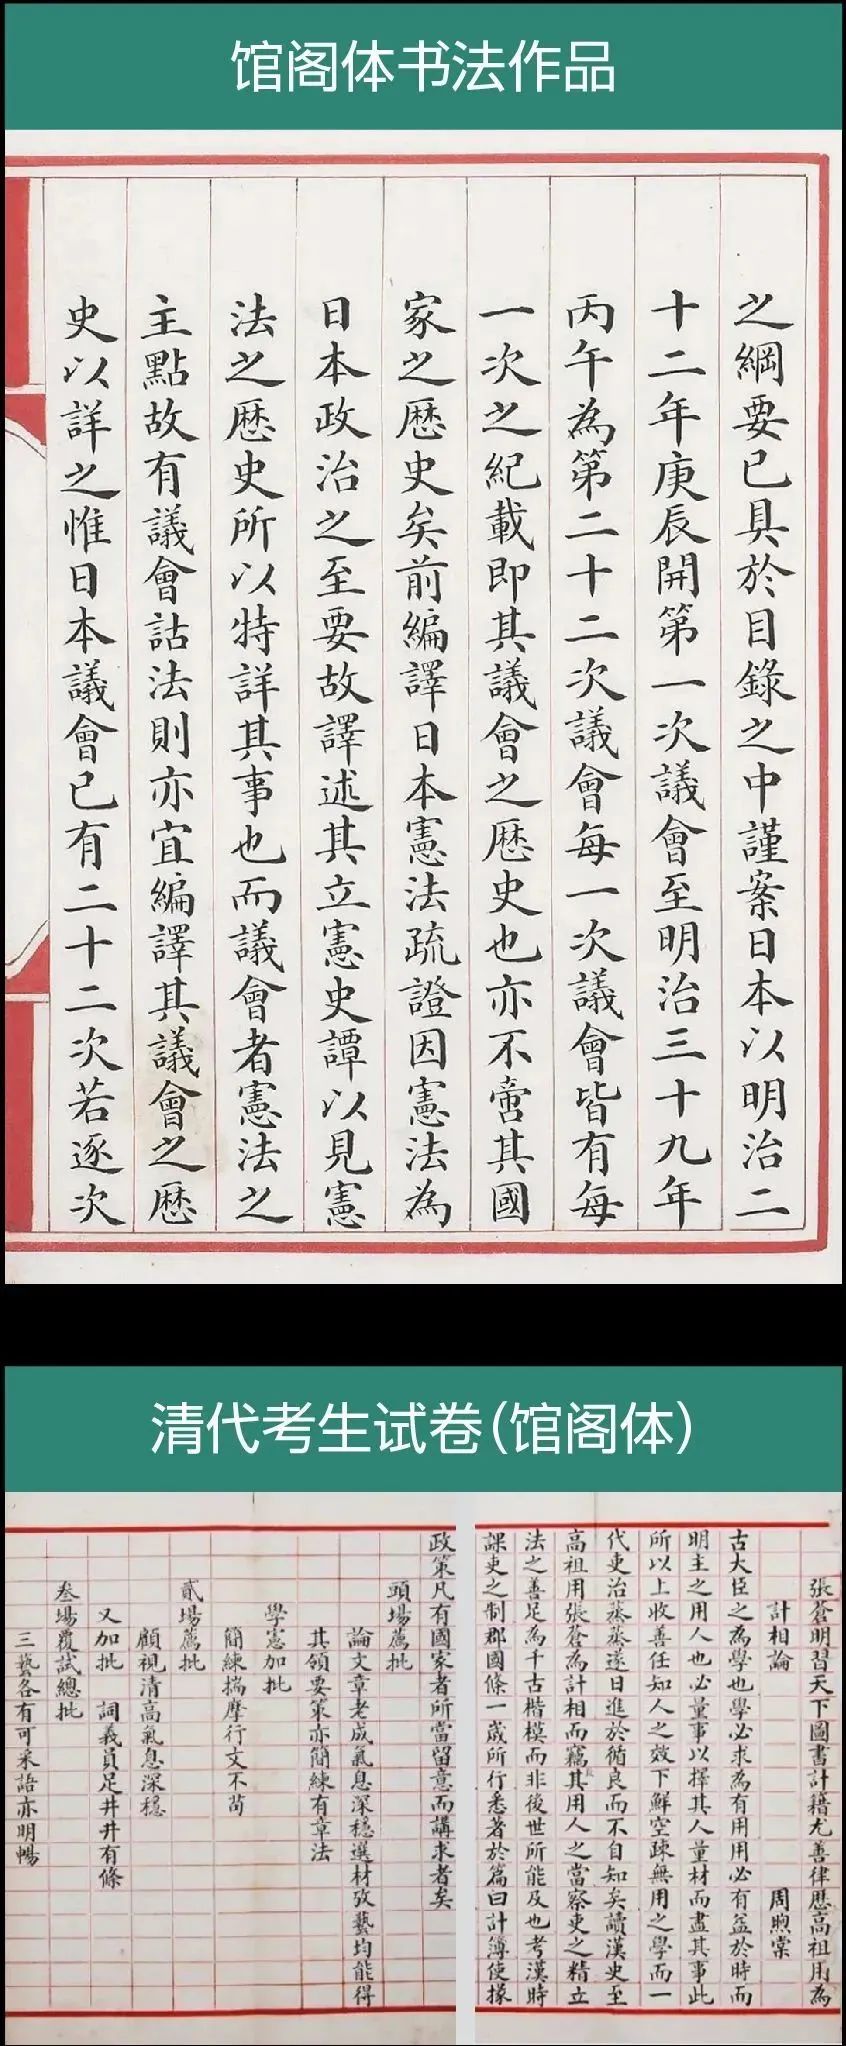 馆阁体书法作品
之綱要已具於目錄之中謹案日本以明治二
十二年庚辰開第一次議會至明治三十九年
丙午為第二十二次議會每一次議會皆有每
一次之紀載即其議會之歷史也亦不啻其國
家之歷史矣前編譯日本憲法疏證因憲法為
日本政治之至要故譯述其立憲史譚以見憲
法之歷史所以特詳其事也而議會者憲法之
主點故有議會詁法則亦宜編譯其議會之歷
史以詳之惟日本議會已有二十二次若逐次
清代考生试卷(馆阁体)
張蒼明習天下圖書計籍尤善律歷高祖用為
計相論 周煦棠
古大臣之為學也學必求為有用用必有益於時而
明主之用人也必量事以擇其人量材而盡其事此
所以上收善任知人之效下鮮空疎無用之學而一
代吏治蒸蒸遂日進於循良而不自知矣讀漢史至
高祖用張蒼為計相而竊其用人之當察吏之精立
法之善足為千古楷模而非後世所能及也考漢時
課吏之制郡國條一歲所行悉著於篇曰計簿使掾
政策凡有國家者所當留意而講求者矣
頭場薦批
論文章老成氣息深穩選材攷藝均能得
其領要策亦簡練有章法
學憲加批
簡練揣摩行文不苟
貳場薦批
顧視清高氣息深穩
又加批 詞義員足井井有條
叁場覆試總批
三藝各有可采語亦明暢